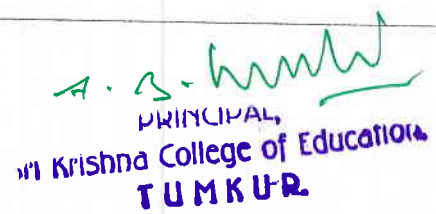 A. B.
PRINCIPAL,
Sri Krishna College of Education,
TUMKUR.